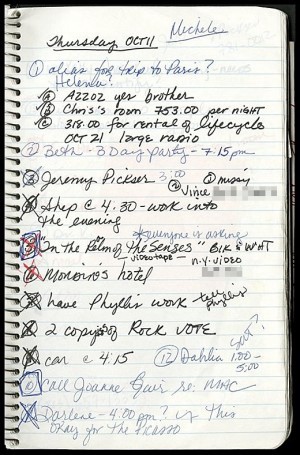 Michele
Thursday OCT 11
① alias for trip to Paris?
Helena?
ⓐ Azzoz yes brother
ⓑ Chris's room 753.00 per night
ⓒ 318.00 for rental of lifecycles
OCT 21 large radio
② Beth - 3 Day party - 7:15 pm
③ Jeremy Pickser 3:00
① missy
② Vince
④ step @ 4:30 - work into
the evening
*everyone is asking
⑤ "In the Relm of The Senses" Blk & Wht
videotape
N.Y. Video
hotel
have Phyllis work tell phyllis
2 copies of Rock Vote
car @ 4:15
⑫ Dahlia 1:00-
5:00
Sat?
Call Joanne Gair re: MAC
Darlene - 4:00 pm? if this
okay for The Picasso